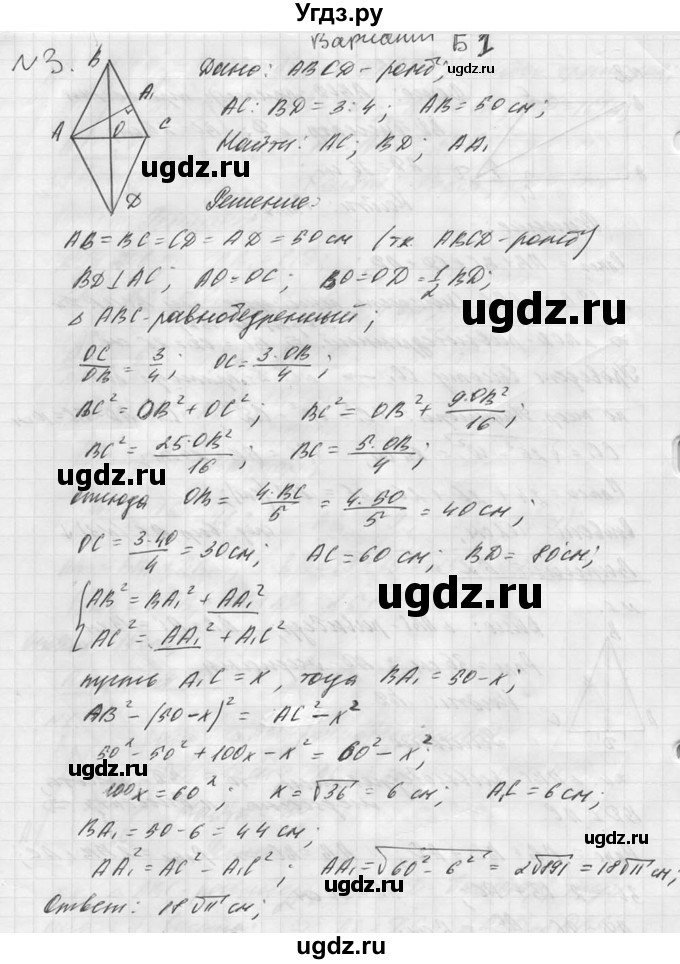 Угдз.ру
Вариант Б1
№3.
B
A₁
A
O
C
D
Дано: ABCD - ромб;
AC : BD = 3 : 4; AB = 50 см;
Найти: AC; BD; AA₁
ugdz.ru
ugdz.ru
Решение:
AB = BC = CD = AD = 50 см (тк ABCD - ромб)
BD ⊥ AC; AO = OC; BO = OD = 1/2 BD;
ugdz.ru
Δ ABC - равнобедренный;
OC/OB = 3/4; OC = 3·OB/4;
BC² = OB² + OC²; BC² = OB² + 9·OB²/16;
BC² = 25·OB²/16; BC = 5·OB/4;
ugdz.ru
отсюда OB = 4·BC/5 = 4·50/5 = 40 см;
OC = 3·40/4 = 30 см; AC = 60 см; BD = 80 см;
ugdz.ru
{ AB² = BA₁² + AA₁²
AC² = AA₁² + A₁C²
пусть A₁C = x, тогда BA₁ = 50 - x;
AB² - (50 - x)² = AC² - x²
50² - 50² + 100x - x² = 60² - x²;
ugdz.ru
100x = 60²; x = √36 = 6 см; A₁C = 6 см;
BA₁ = 50 - 6 = 44 см;
ugdz.ru
AA₁² = AC² - A₁C²; AA₁ = √60² - 6² = 2√891 = 18√11 см;
Ответ: 18√11 см;
ugdz.ru
ugdz.ru